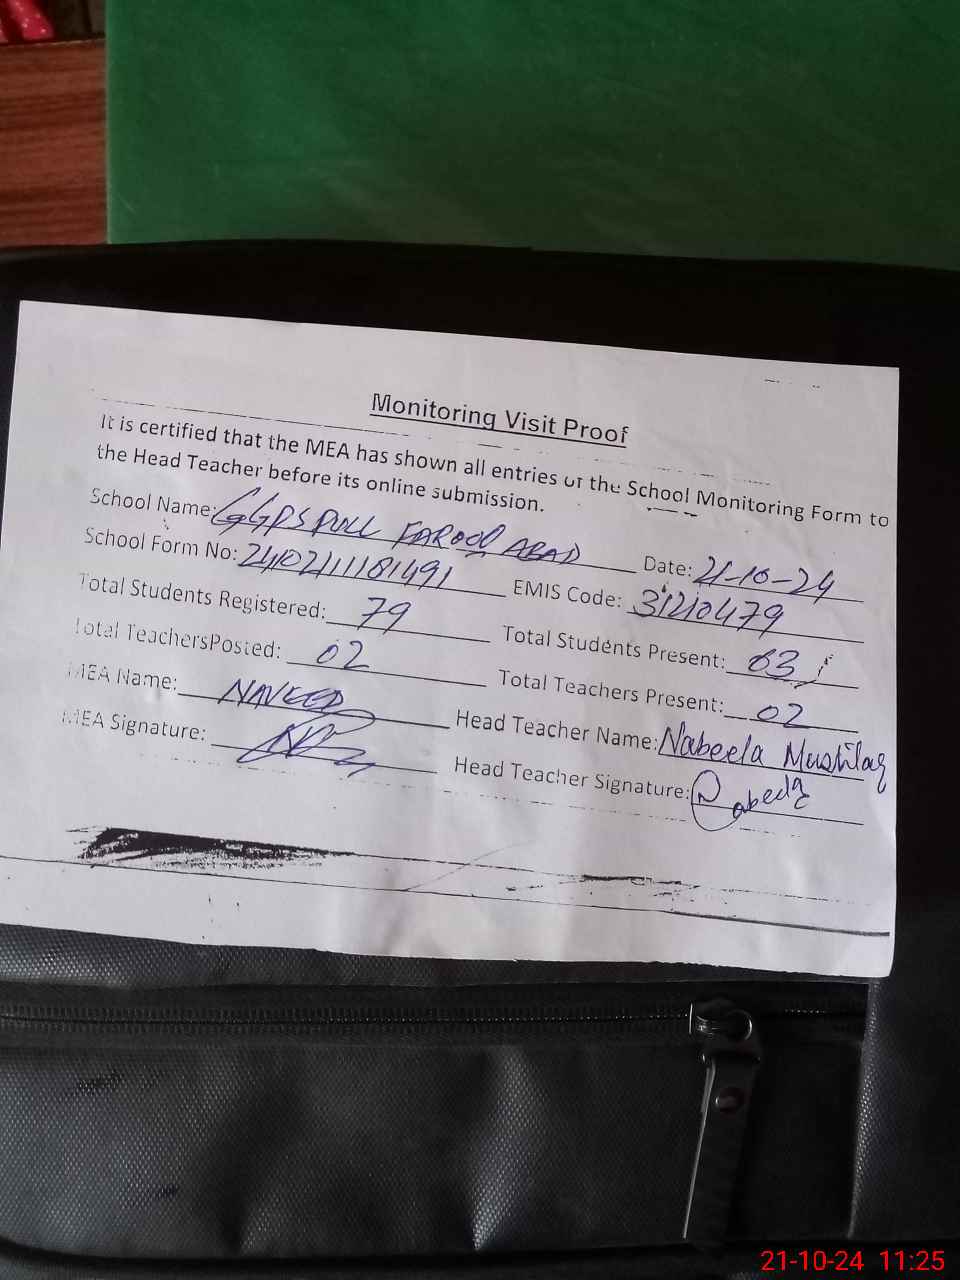 Monitoring Visit Proof
It is certified that the MEA has shown all entries of the School Monitoring Form to
the Head Teacher before its online submission.
School Name: GGPS PULL FAROOQ ABAD Date: 21-10-24
School Form No: 2410211181491 EMIS Code: 31210479
Total Students Registered: 79 Total Students Present: 63
Total TeachersPosted: 02 Total Teachers Present: 02
MEA Name: NAVEED Head Teacher Name: Nabeela Mushtaq
MEA Signature: Head Teacher Signature: Nabeela
21-10-24 11:25